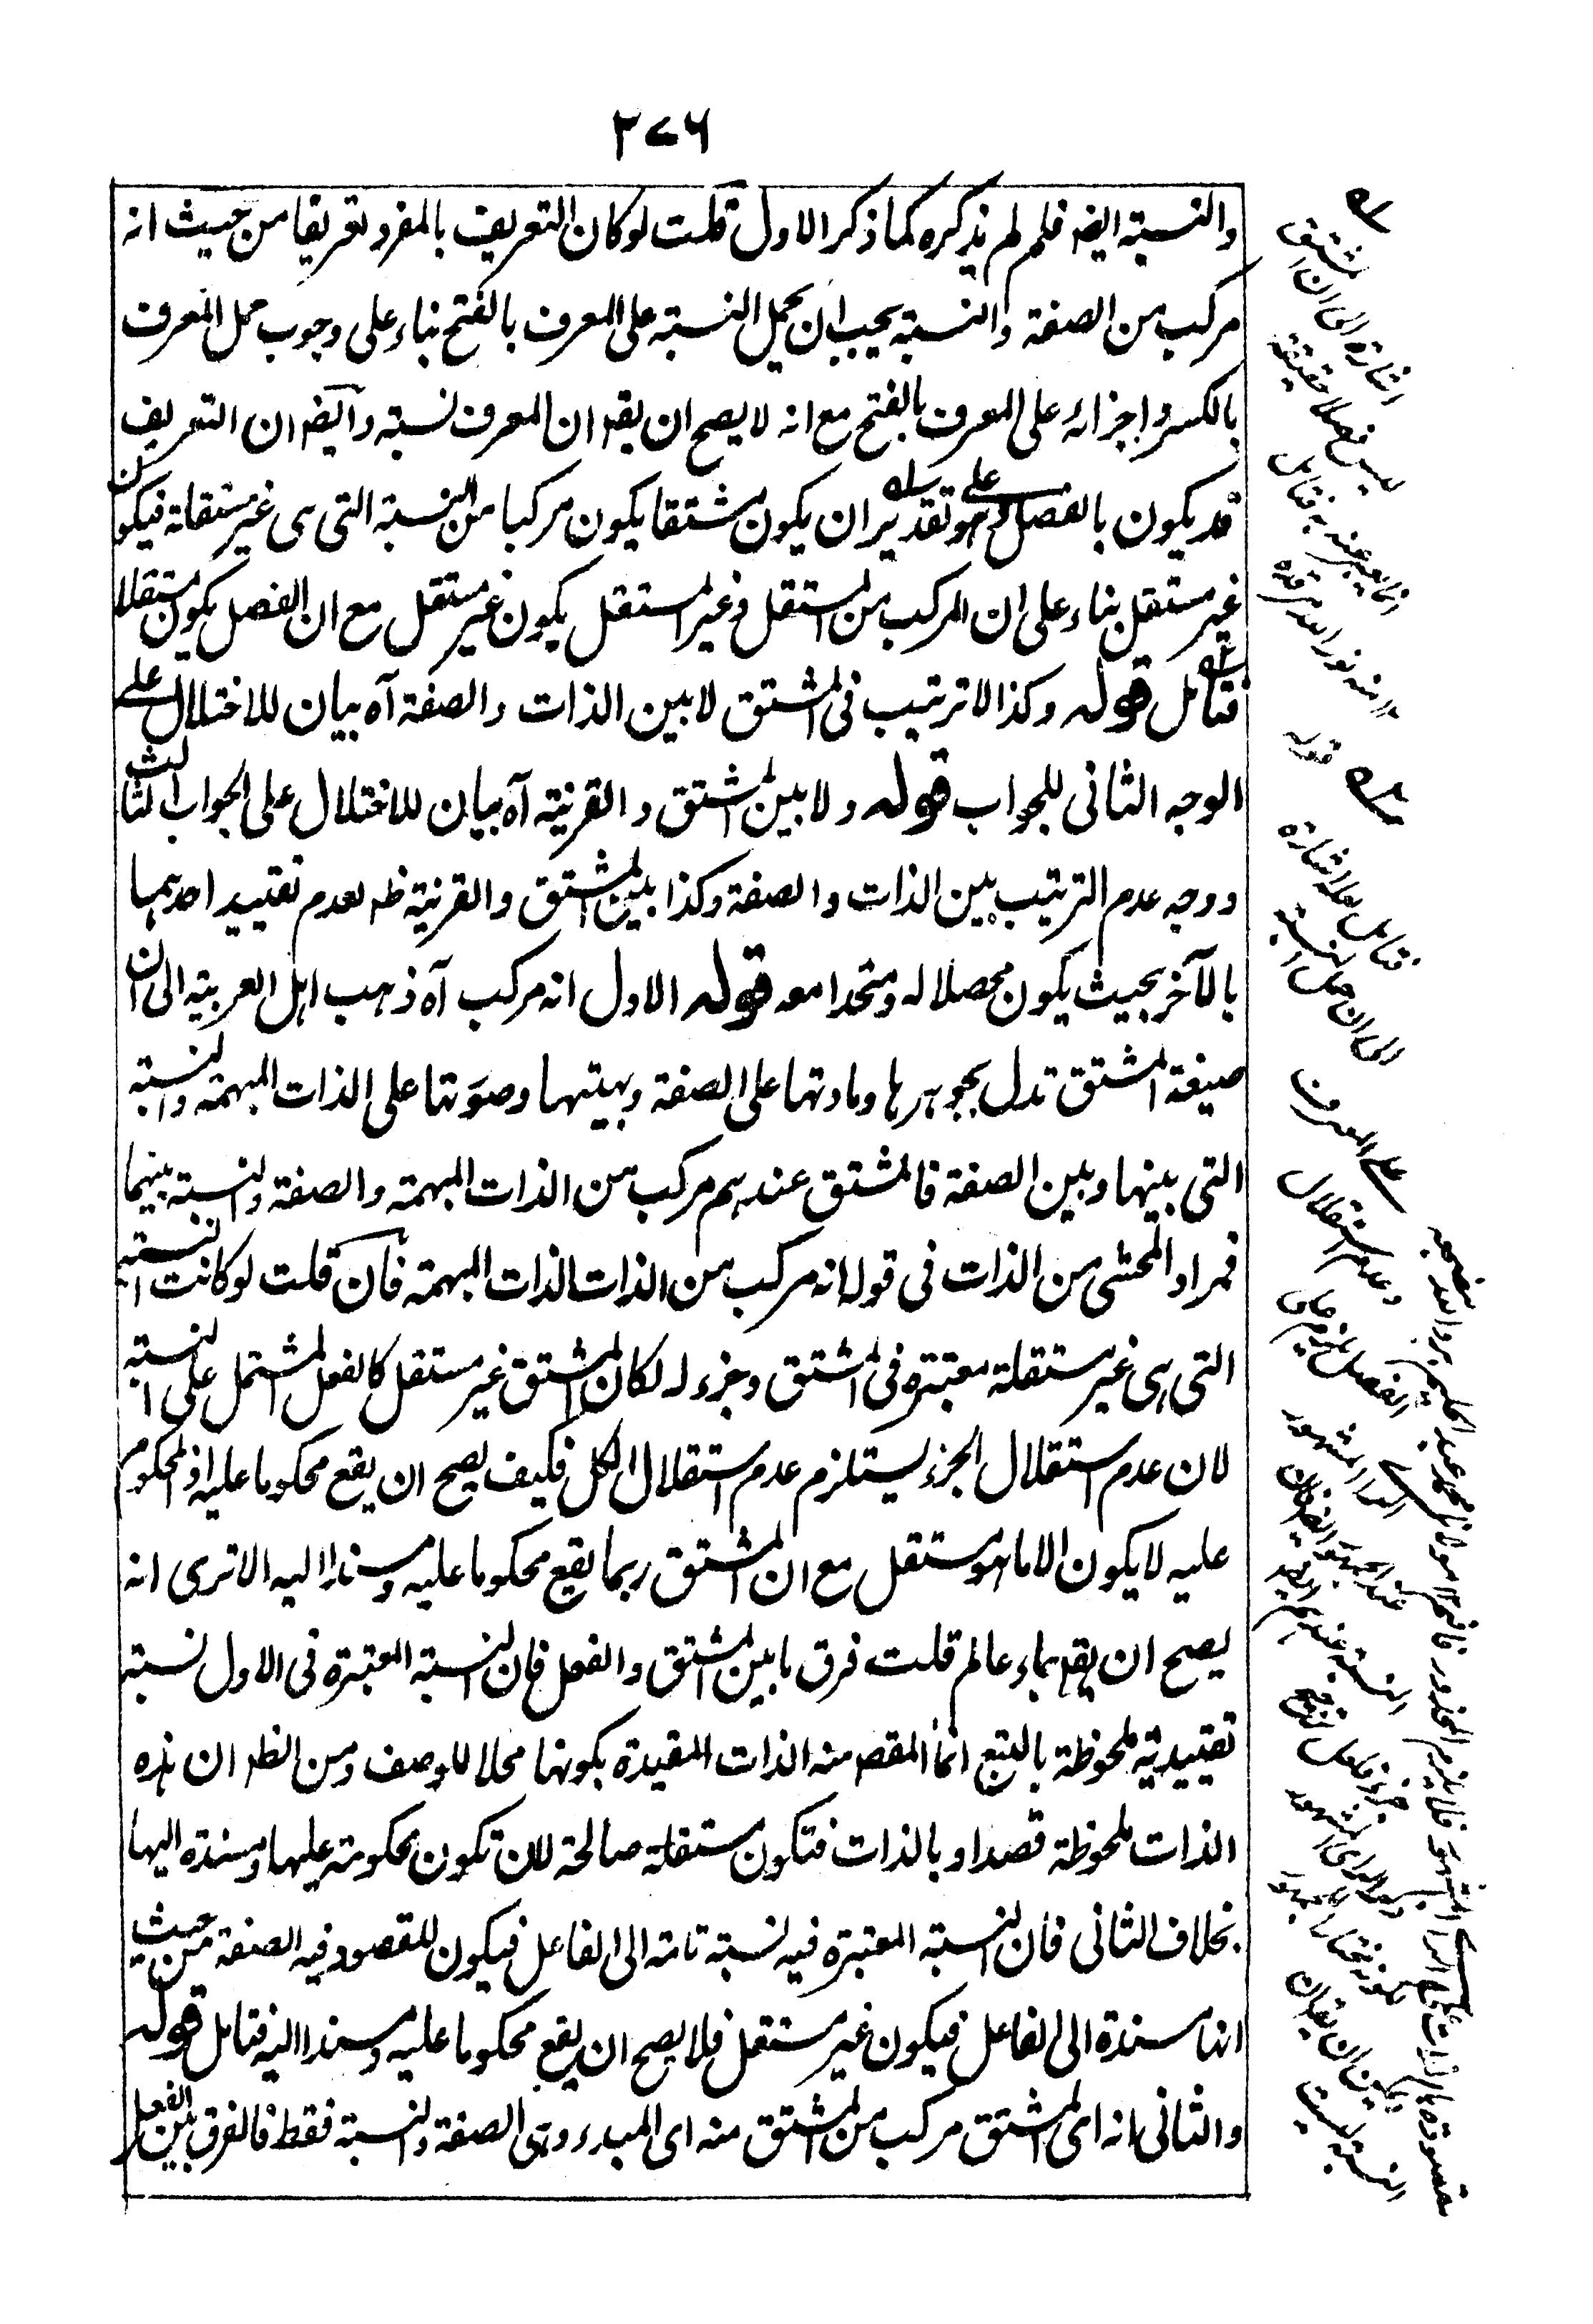 ۲۷۶
والنسبة ایضہ فلم لم یذکرہ کما ذکر الاول قلت لو کان التعریف بالمفرد تعریفا من حیث انہ
مرکب من الصفة والنسبة یجب ان یحمل النسبة علی المعرف بالفتح بناء علی وجوب حمل المعرف
بالکسر واجزائہ علی المعرف بالفتح مع انہ لا یصح ان یقہ ان المعرف نسبة وایضہ ان التعریف
قد یکون بالفصل وهو علی تقدیر ان یکون مشتقا یکون مرکبا من النسبة التی هی غیر مستقلة فیکون
غیر مستقل بناء علی ان المرکب من المستقل وغیر المستقل یکون غیر مستقل مع ان الفصل یکون مستقلا
فتامل قولہ وکذا لا ترتیب فی المشتق لا بین الذات والصفة آہ بیان للاختلال علی
الوجہ الثانی للجواب قولہ ولا بین المشتق والقرینة آہ بیان للاختلال علی الجواب الثالث
ووجہ عدم الترتیب بین الذات والصفة وکذا بین المشتق والقرینة ظہ لعدم تقیید احدیهما
بالآخر بحیث یکون محصلا لہ ومتحدا معہ قولہ الاول انہ مرکب آہ ذهب اهل العربیة الی ان
صیغة المشتق تدل بجوهرها ومادتها علی الصفة وبهیتها وصورتها علی الذات المبهمة والنسبة
التی بینها وبین الصفة فالمشتق عندهم مرکب من الذات المبهمة والصفة والنسبة بینهما
فمراد المحشی من الذات فی قولہ انہ مرکب من الذات الذات المبهمة فان قلت لو کانت النسبة
التی هی غیر مستقلة معتبرة فی المشتق وجزء لہ لکان المشتق غیر مستقل کالفعل المشتمل علی النسبة
لان عدم استقلال الجزء یستلزم عدم استقلال الکل فکیف یصح ان یقع محکوما علیہ اذ المحکوم
علیہ لا یکون الا ما هو مستقل مع ان المشتق ربما یقع محکوما علیہ ومسندا الیہ الا تری انہ
یصح ان یقہ جاء عالم قلت فرق ما بین المشتق والفعل فان النسبة المعتبرة فی الاول نسبة
تقییدیة ملحوظة بالتبع انما المقصہ منہ الذات المقیدة بکونها محلا للوصف ومن الظہ ان هذہ
الذات ملحوظة قصدا وبالذات فتکون مستقلة صالحة لان تکون محکومة علیها ومسندة الیها
بخلاف الثانی فان النسبة المعتبرة فیہ نسبة تامة الی الفاعل فیکون المقصود فیہ الصفة من حیث
انها مسندة الی الفاعل فیکون غیر مستقل فلا یصح ان یقع محکوما علیہ ومسندا الیہ فتامل قولہ
والثانی انہ ای المشتق مرکب من المشتق منہ ای المبدء وهی الصفة والنسبة فقط فالفرق بین الفعل
لہ
اشارة الی ان المشتق
لیس فصلا حقیقة
انما یعبر عنہ بہ فتامل
۱۲ منہ نور اللہ مرقدہ
قولہ
فتامل لعلہ اشارة
الی ان حمل النسبة
علی المعرف
وعدم استقلال